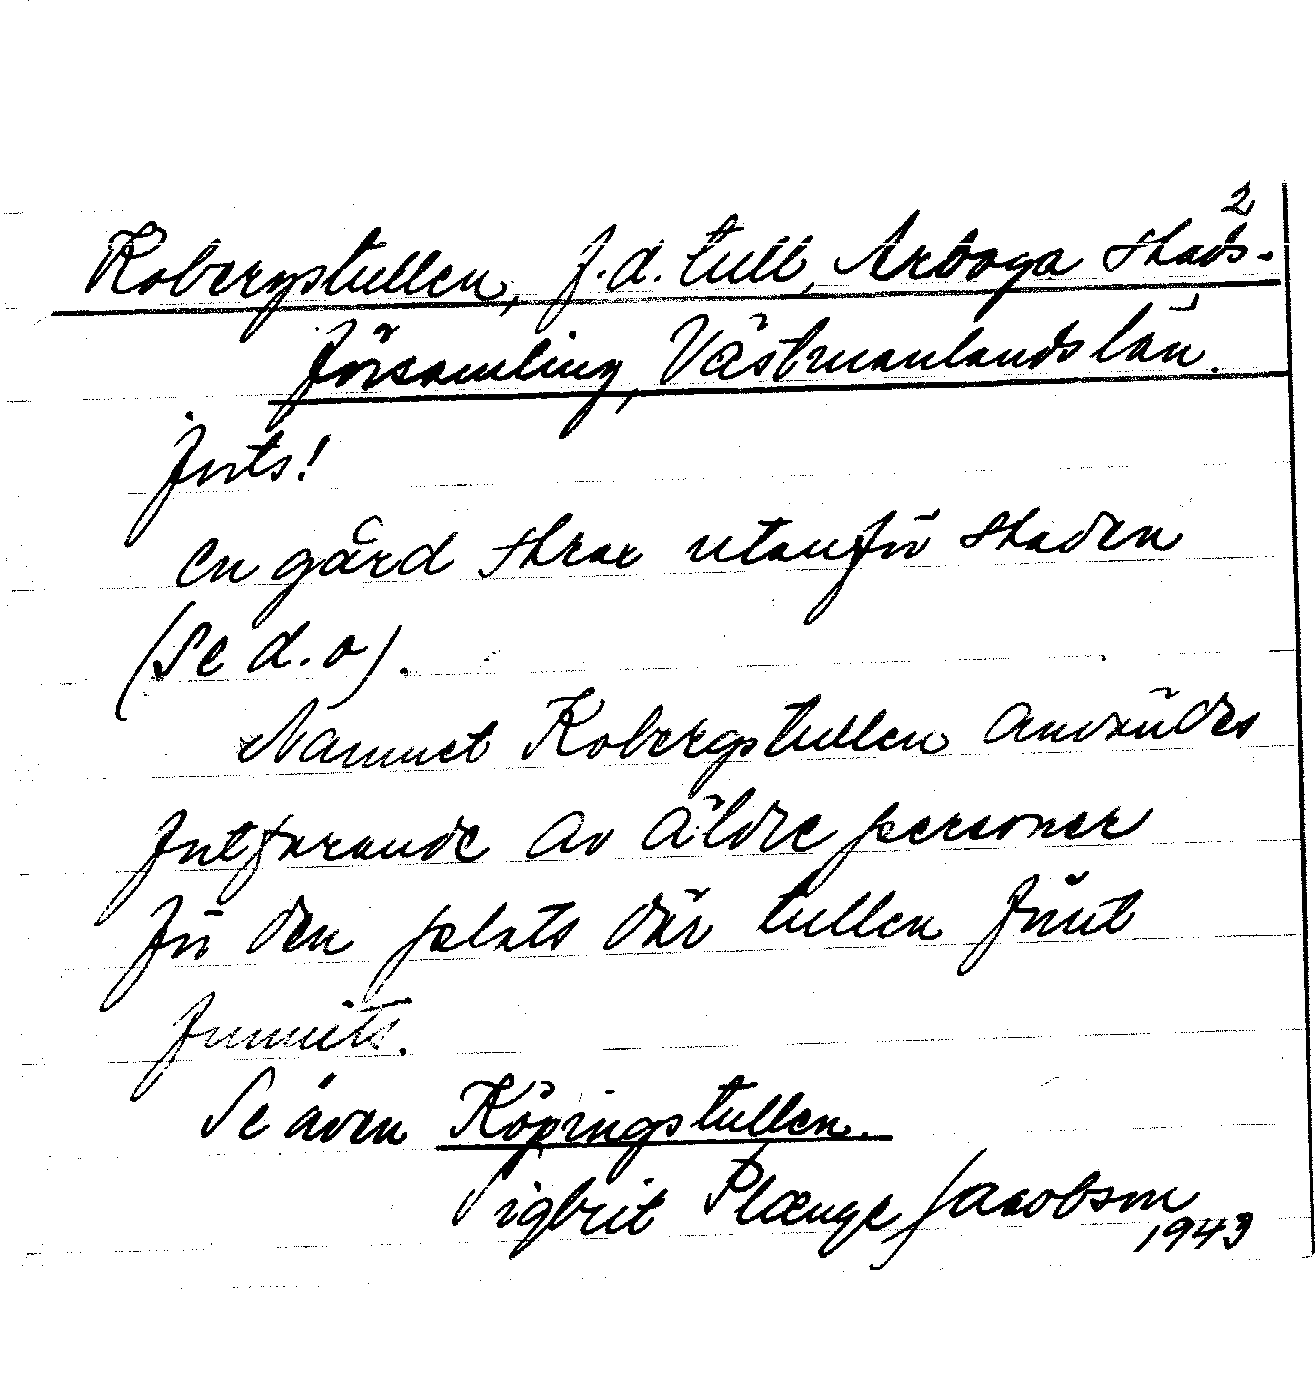 2
Kobergstullen, f.d. tull, Arboga stads-
församling, Västmanlands län.
forts!
en gård strax utanför staden
(Se d.o).
Namnet Kobergstullen användes
fortfarande av äldre personer
för den plats där tullen förut
funnits.
Se även Köpingstullen.
Sigbrit Plænge Jacobson
1943